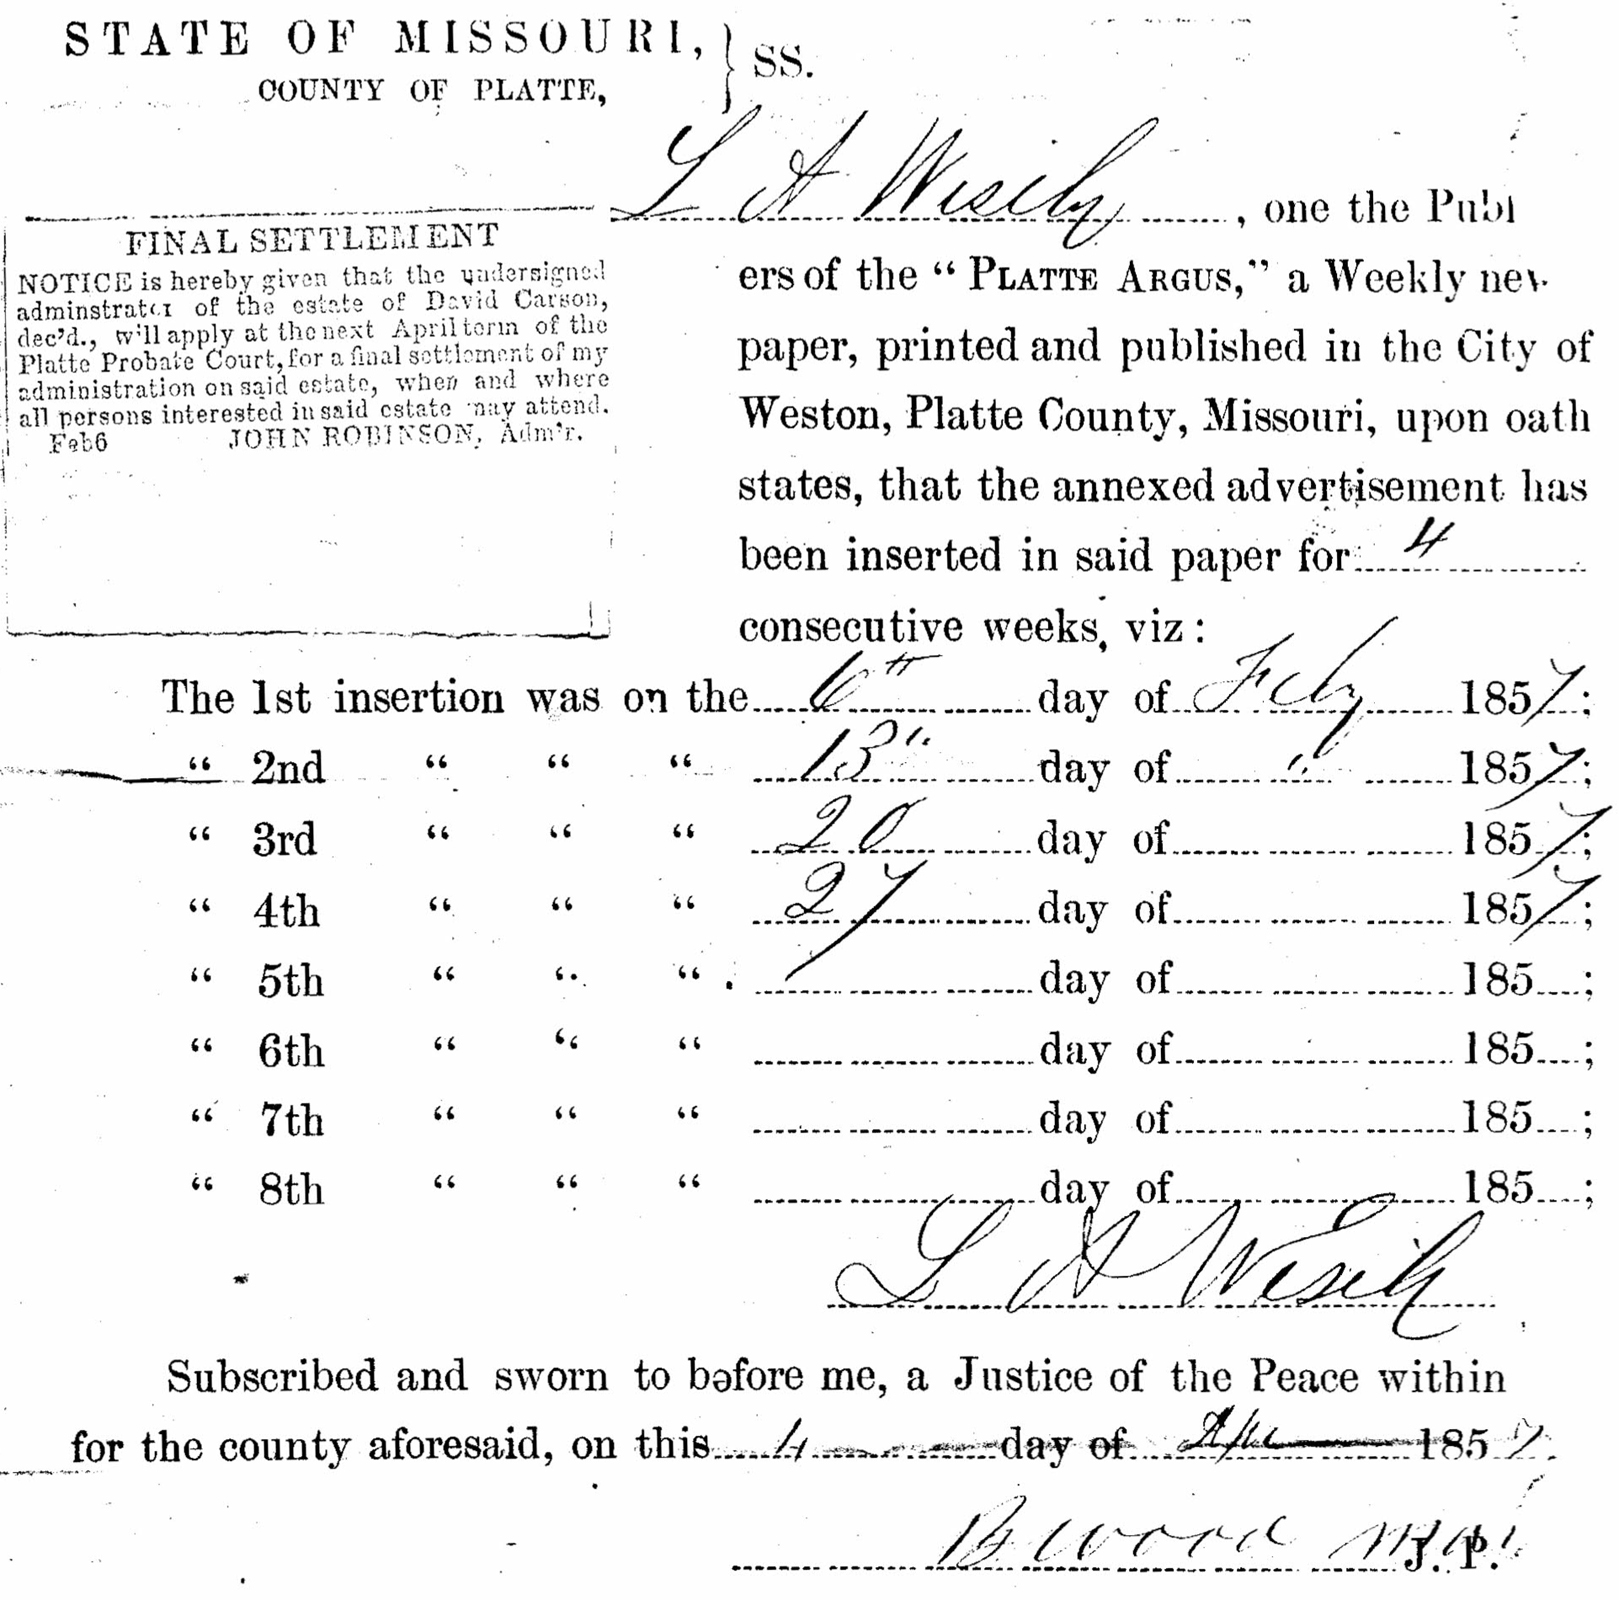 STATE OF MISSOURI, } SS.
COUNTY OF PLATTE,
L A Wisely, one the Publ
ers of the “ PLATTE ARGUS,” a Weekly new
paper, printed and published in the City of
Weston, Platte County, Missouri, upon oath
states, that the annexed advertisement has
been inserted in said paper for 4
consecutive weeks, viz :
FINAL SETTLEMENT
NOTICE is hereby given that the undersigned
adminstrator of the estate of David Carson,
dec'd., will apply at the next April term of the
Platte Probate Court, for a final settlement of my
administration on said estate, when and where
all persons interested in said estate may attend.
Feb6 JOHN ROBINSON, Adm'r.
The 1st insertion was on the 6th day of Feby 1857;
“ 2nd “ “ “ 13" day of " 1857;
“ 3rd “ “ “ 20 day of 1857;
“ 4th “ “ “ 27 day of 1857;
“ 5th “ “ “ day of 185 ;
“ 6th “ “ “ day of 185 ;
“ 7th “ “ “ day of 185 ;
“ 8th “ “ “ day of 185 ;
L A Wisely
Subscribed and sworn to before me, a Justice of the Peace within
for the county aforesaid, on this 4 day of 1857.
B Wood J. P.